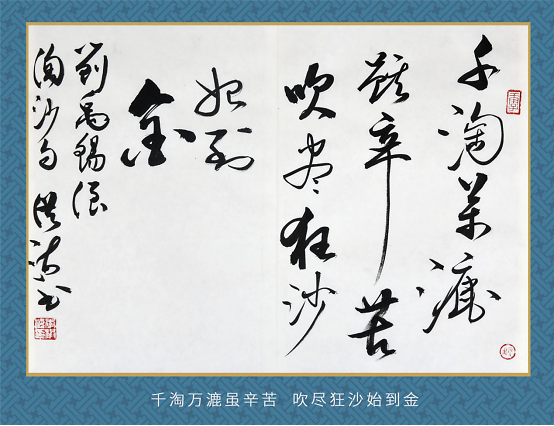 千淘萬漉
雖辛苦
吹盡狂沙
始到
金
劉禹錫浪
淘沙句 洪
千淘万漉虽辛苦 吹尽狂沙始到金